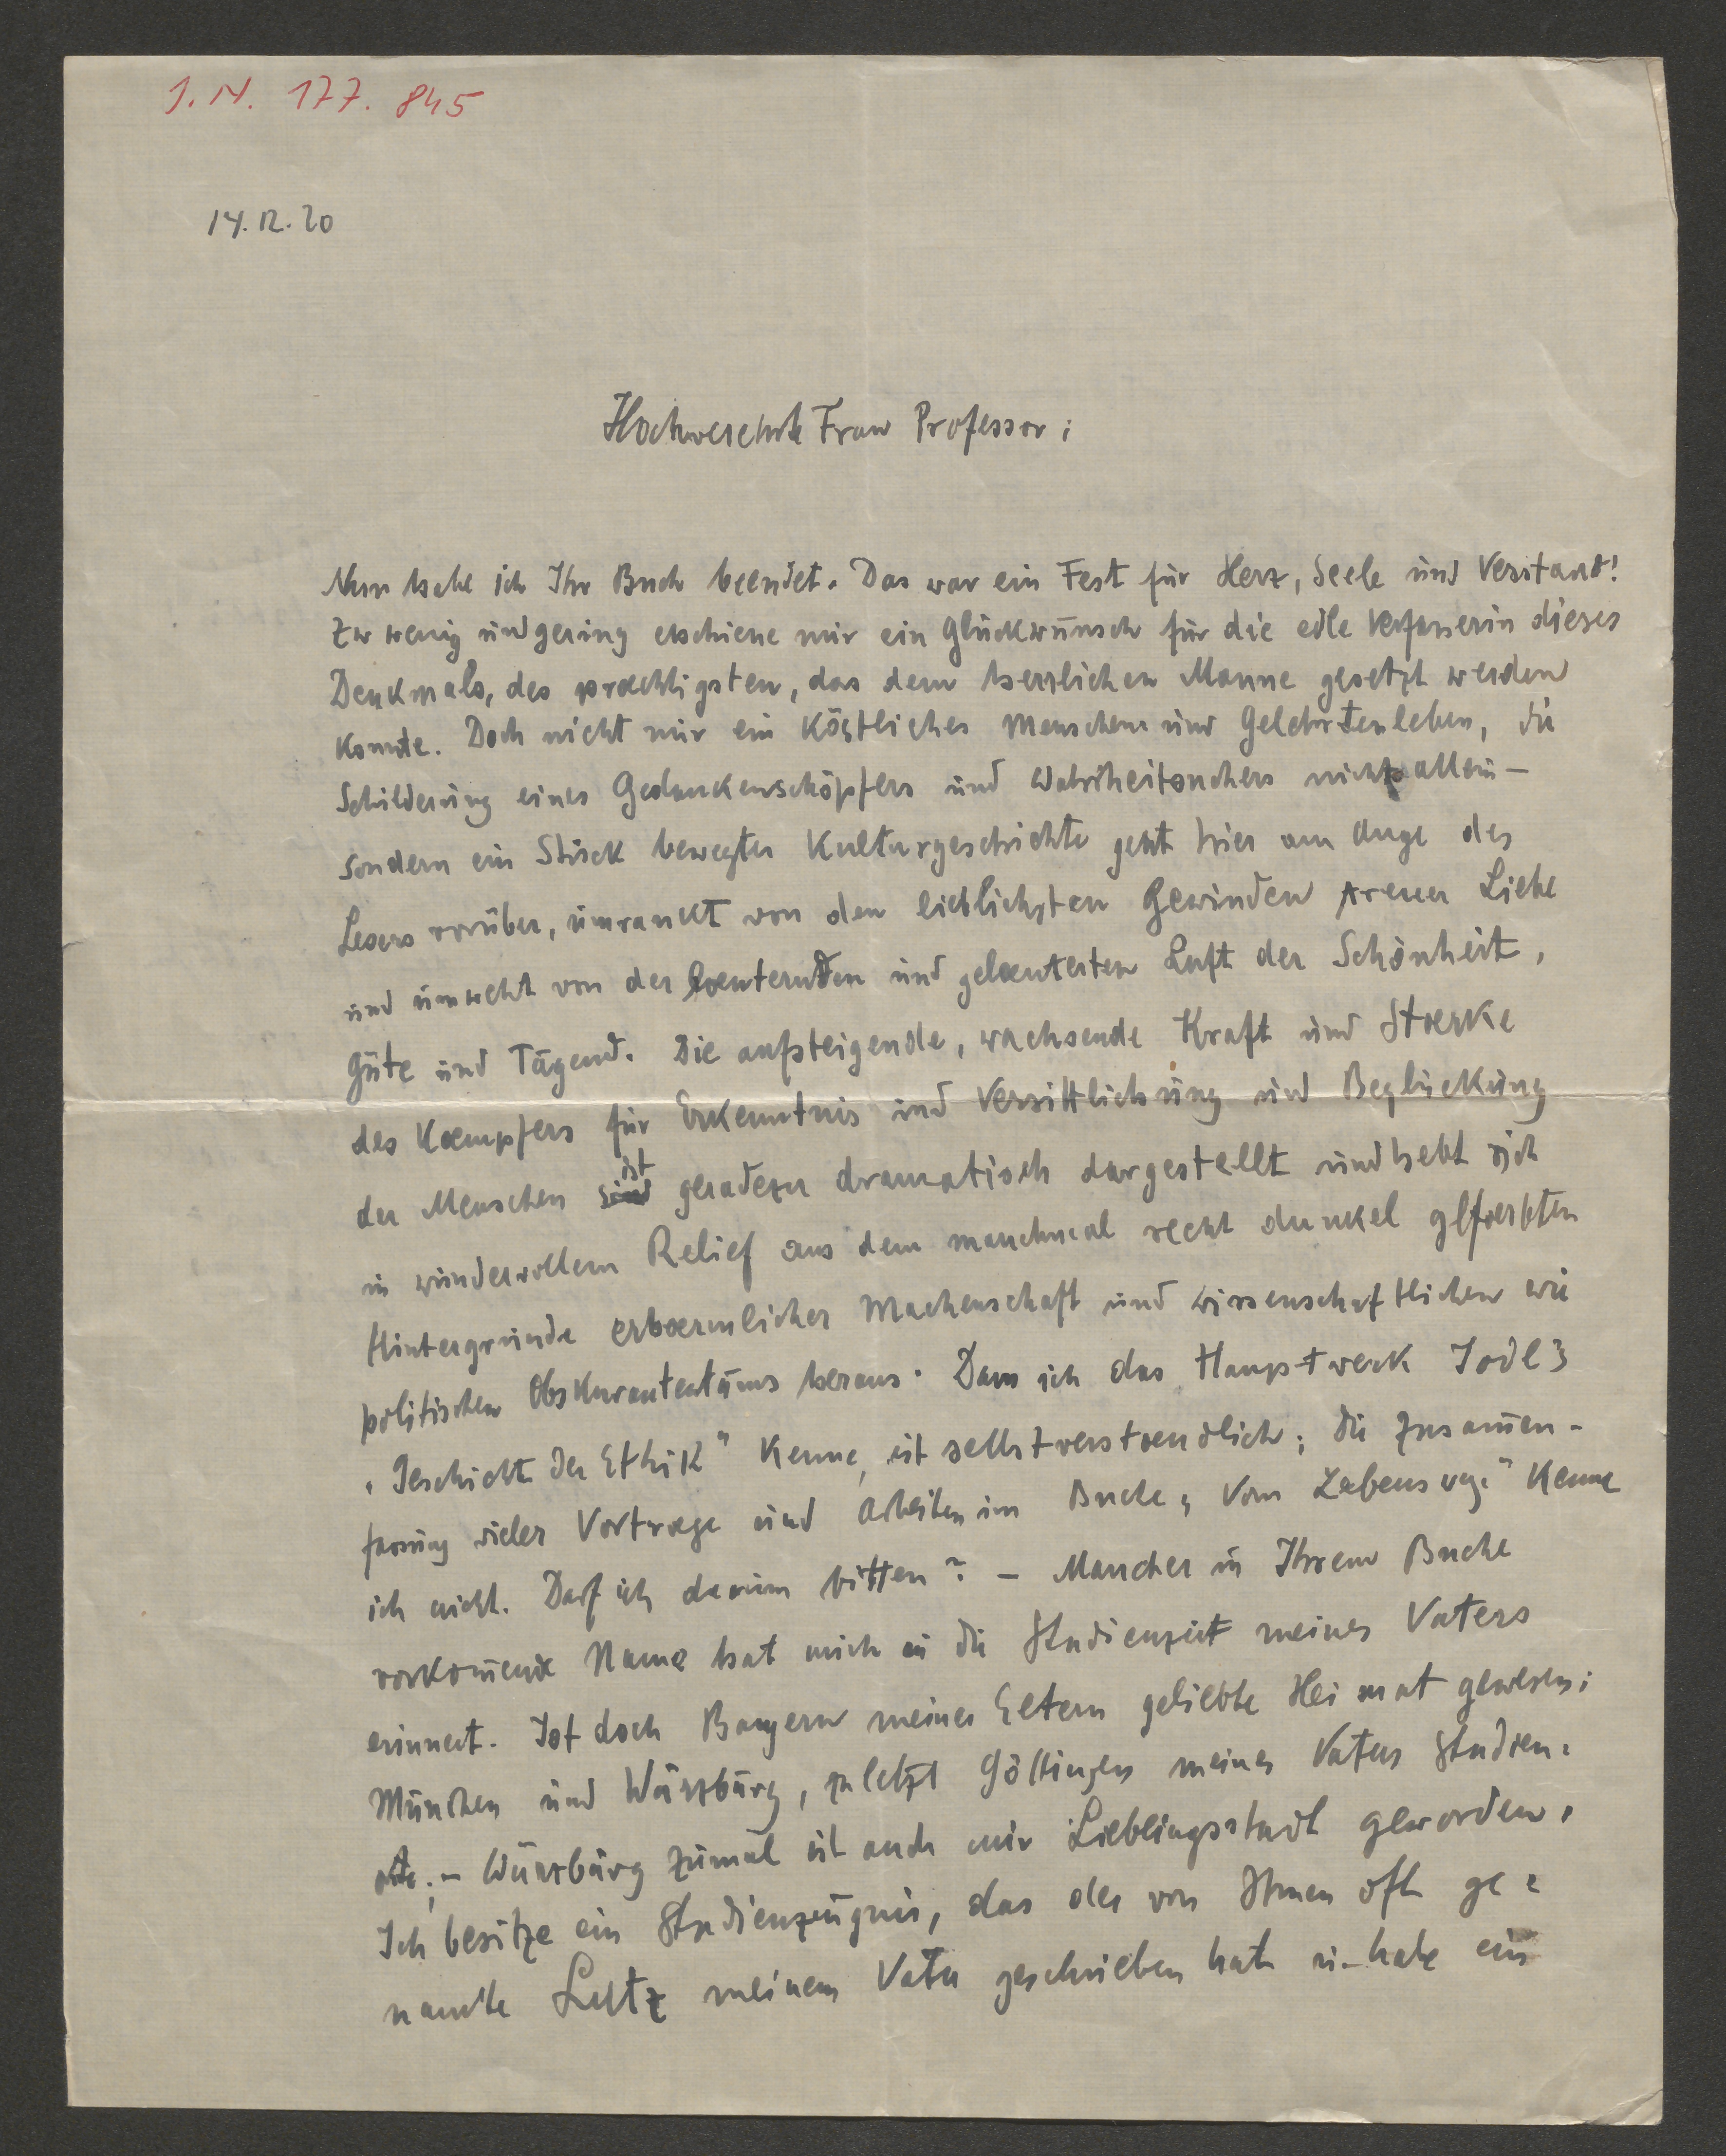 I. N. 177.845
14.12.20
Hochverehrte Frau Professor;
Nun habe ich Ihr Buch beendet. Das war ein Fest für Herz, Seele und Verstand!
Zu wenig und gering erschiene mir ein Glückwunsch für die edle Verfasserin dieses
Denkmals, des praechtigsten, das dem herrlichen Manne gesetzt werden
konnte. Doch nicht nur ein köstliches Menschen und Gelehrtenleben, die
Schilderung eines Gedankenschöpfers und Wahrheitsuchers nicht allein –
sondern ein Stück bewegter Kulturgeschichte geht hier am Auge des
Lesers vorüber, umrankt von den lieblichsten Gewinden treuer Liebe
und umweht von der laeuternden und gelaeuterten Luft der Schönheit,
Güte und Tugend. Die aufsteigende, wachsende Kraft und Staerke
des Kaempfers für Erkenntnis und Versittlichung und Beglückung
der Menschen ist geradezu dramatisch dargestellt und hebt sich
in wundervollem Relief aus dem manchmal recht dunkel gefaerbten
Hintergrunde erbaermlicher Machenschaft und wissenschaftlichen wie
politischen Obskurantentums heraus. Dass ich das Hauptwerk Jodls
„Geschichte der Ethik" kenne, ist selbstverstaendlich; die Zusam̄en-
fassung vieler Vortraege und Arbeiten im Buche „Vom Lebenswege" kenne
ich nicht. Darf ich darum bitten? – Mancher in Ihrem Buche
vorkom̄ende Name hat mich an die Studienzeit meines Vaters
erinnert. Ist doch Bayern meiner Eltern geliebte Heimat gewesen;
München und Würzburg, zuletzt Göttingen meines Vaters Studien-
orte; – Würzburg zumal ist auch mir Lieblingsstadt geworden.
Ich besitze ein Studienzeugnis, das der von Ihnen oft ge-
nannte meinem Vater geschrieben hat u. habe ein